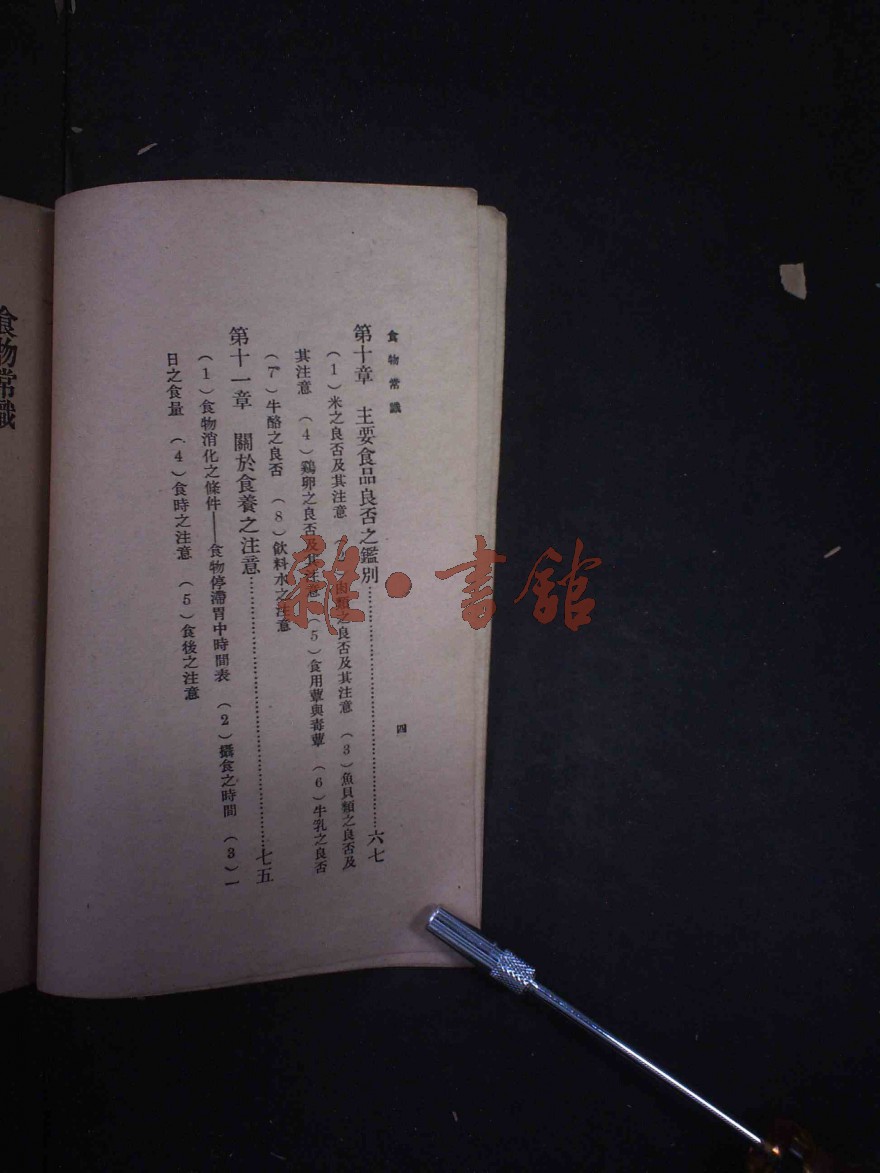 食物常識
四
第十章　主要食品良否之鑑別……六七
（1）米之良否及其注意　（2）肉類之良否及其注意　（3）魚貝類之良否及
其注意　（4）鷄卵之良否及其注意　（5）食用蕈與毒蕈　（6）牛乳之良否
（7）牛酪之良否　（8）飲料水之注意
第十一章　關於食養之注意……七五
（1）食物消化之條件——食物停滯胃中時間表　（2）攝食之時間　（3）一
日之食量　（4）食時之注意　（5）食後之注意
食物常識
雜·書館